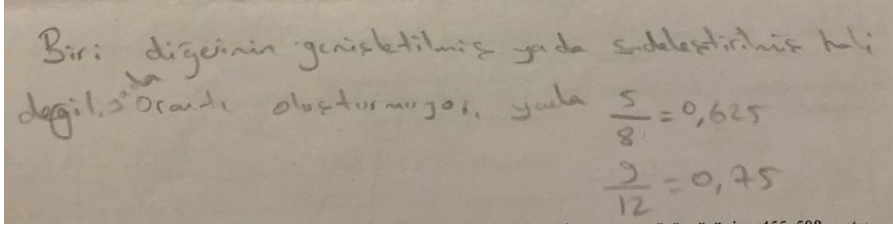 Biri diğerinin genişletilmiş yada sadeleştirilmiş hali
değil. Orantı oluşturmuyor, yada 5/8 = 0,625
9/12 = 0,75